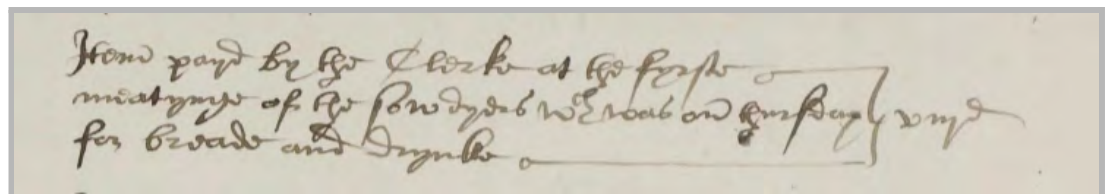 Itm̄ payd by the Clerke at the fyrste
meatynge of the sowdyers wch was on thursday viijd
for breade and drynke